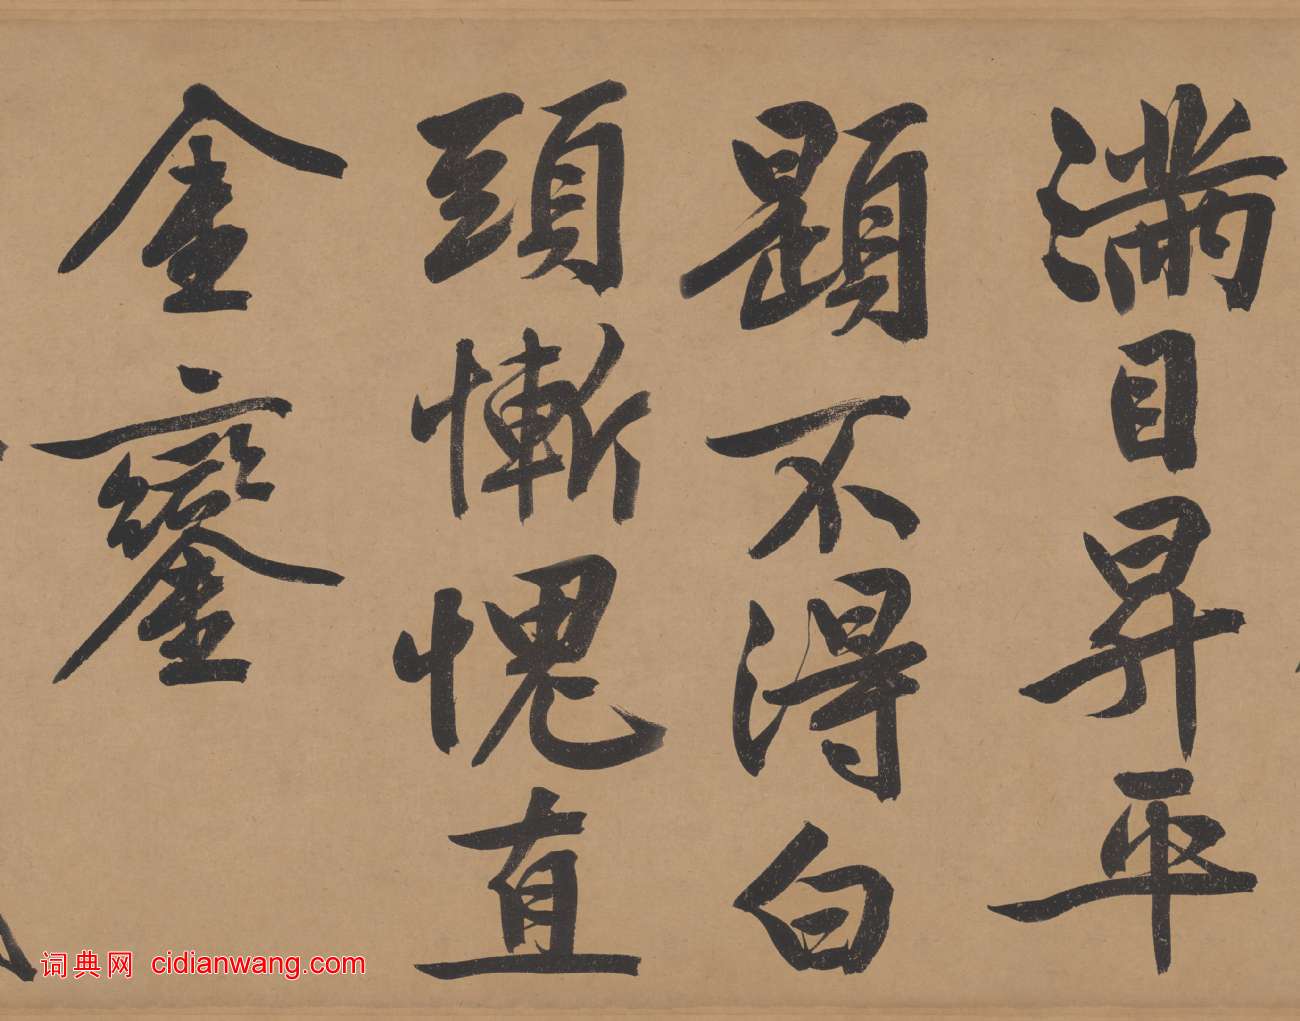 滿目昇平
題不得白
頭慚愧直
金鑾
词典网 cidianwang.com